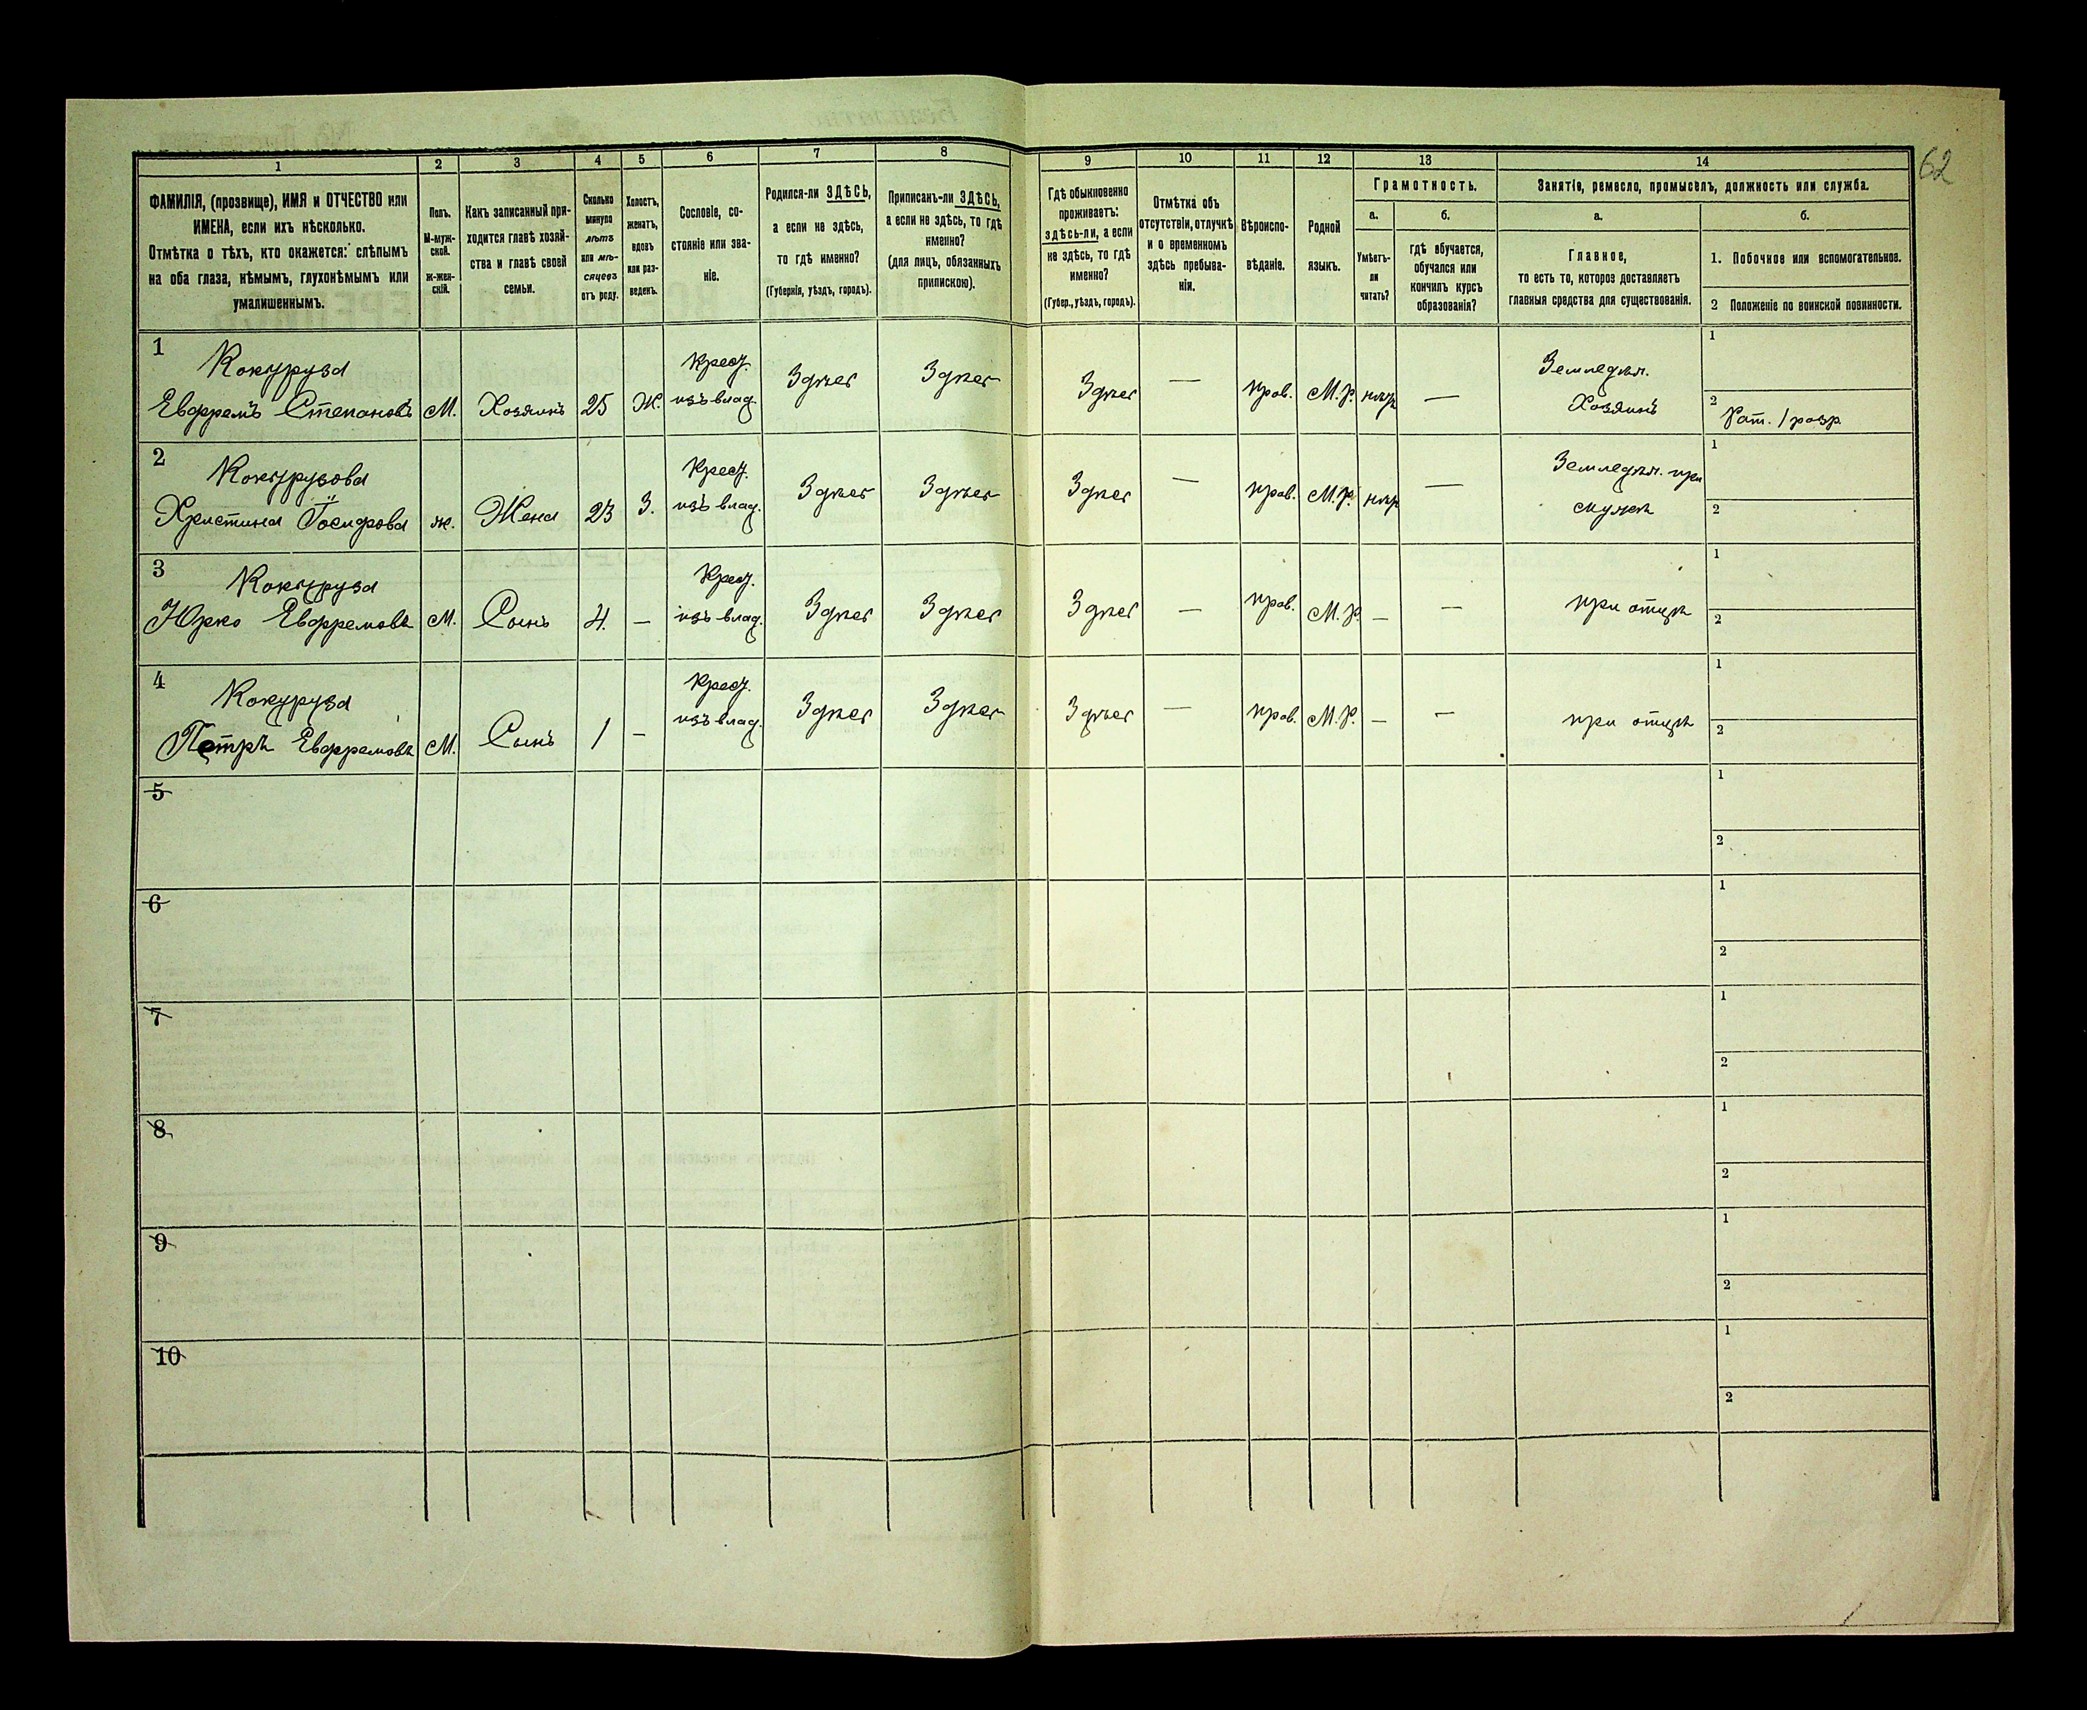 62
1 2 3 4 5 6 7 8 9 10 11 12 13 14
ФАМИЛІЯ, (прозвище), ИМЯ и ОТЧЕСТВО или
ИМЕНА, если ихъ нѣсколько.
Отмѣтка о тѣхъ, кто окажется: слѣпымъ
на оба глаза, нѣмымъ, глухонѣмымъ или
умалишеннымъ.
Полъ.
М-муж-
ской.
ж-жен-
скій.
Какъ записанный при-
ходится главѣ хозяй-
ства и главѣ своей
семьи.
Сколько
минуло
лѣтъ
или мѣ-
сяцевъ
отъ роду.
Холостъ,
женатъ,
вдовъ
или раз-
веденъ.
Сословіе, со-
стояніе или зва-
ніе.
Родился-ли ЗДѢСЬ,
а если не здѣсь,
то гдѣ именно?
(Губернія, уѣздъ, городъ).
Приписанъ-ли ЗДѢСЬ,
а если не здѣсь, то гдѣ
именно?
(для лицъ, обязанныхъ
припискою).
Гдѣ обыкновенно
проживаетъ:
здѣсь-ли, а если
не здѣсь, то гдѣ
именно?
(Губер., уѣздъ, городъ).
Отмѣтка объ
отсутствіи, отлучкѣ
и о временномъ
здѣсь пребыва-
ніи.
Вѣроиспо-
вѣданіе.
Родной
языкъ.
Грамотность.
а. б.
Умѣетъ-
ли
читать?
гдѣ обучается,
обучался или
кончилъ курсъ
образованія?
Занятіе, ремесло, промыселъ, должность или служба.
а. б.
Главное,
то есть то, которое доставляетъ
главныя средства для существованія.
1. Побочное или вспомогательное.
2 Положеніе по воинской повинности.
1 Кокуруза Крест. Здѣсь Здѣсь Здѣсь — прав. М.Р. нѣтъ — Земледѣл. 1
Евфремъ Степановъ М. Хозяинъ 25 Ж. изъ влад. Хозяинъ 2 Рат. 1 разр.
2 Кокурузова Крест. Здѣсь Здѣсь Здѣсь — прав. М.Р. нѣтъ — Земледѣл. при 1
Христина Іосифова ж. Жена 23 З. изъ влад. мужѣ 2
3 Кокуруза Крест. Здѣсь Здѣсь Здѣсь — прав. М.Р. — — при отцѣ 1
Юрко Евфремовъ М. Сынъ 4 — изъ влад. 2
4 Кокуруза Крест. Здѣсь Здѣсь Здѣсь — прав. М.Р. — — при отцѣ 1
Петръ Евфремовъ М. Сынъ 1 — изъ влад. 2
5 1
2
6 1
2
7 1
2
8 1
2
9 1
2
10 1
2